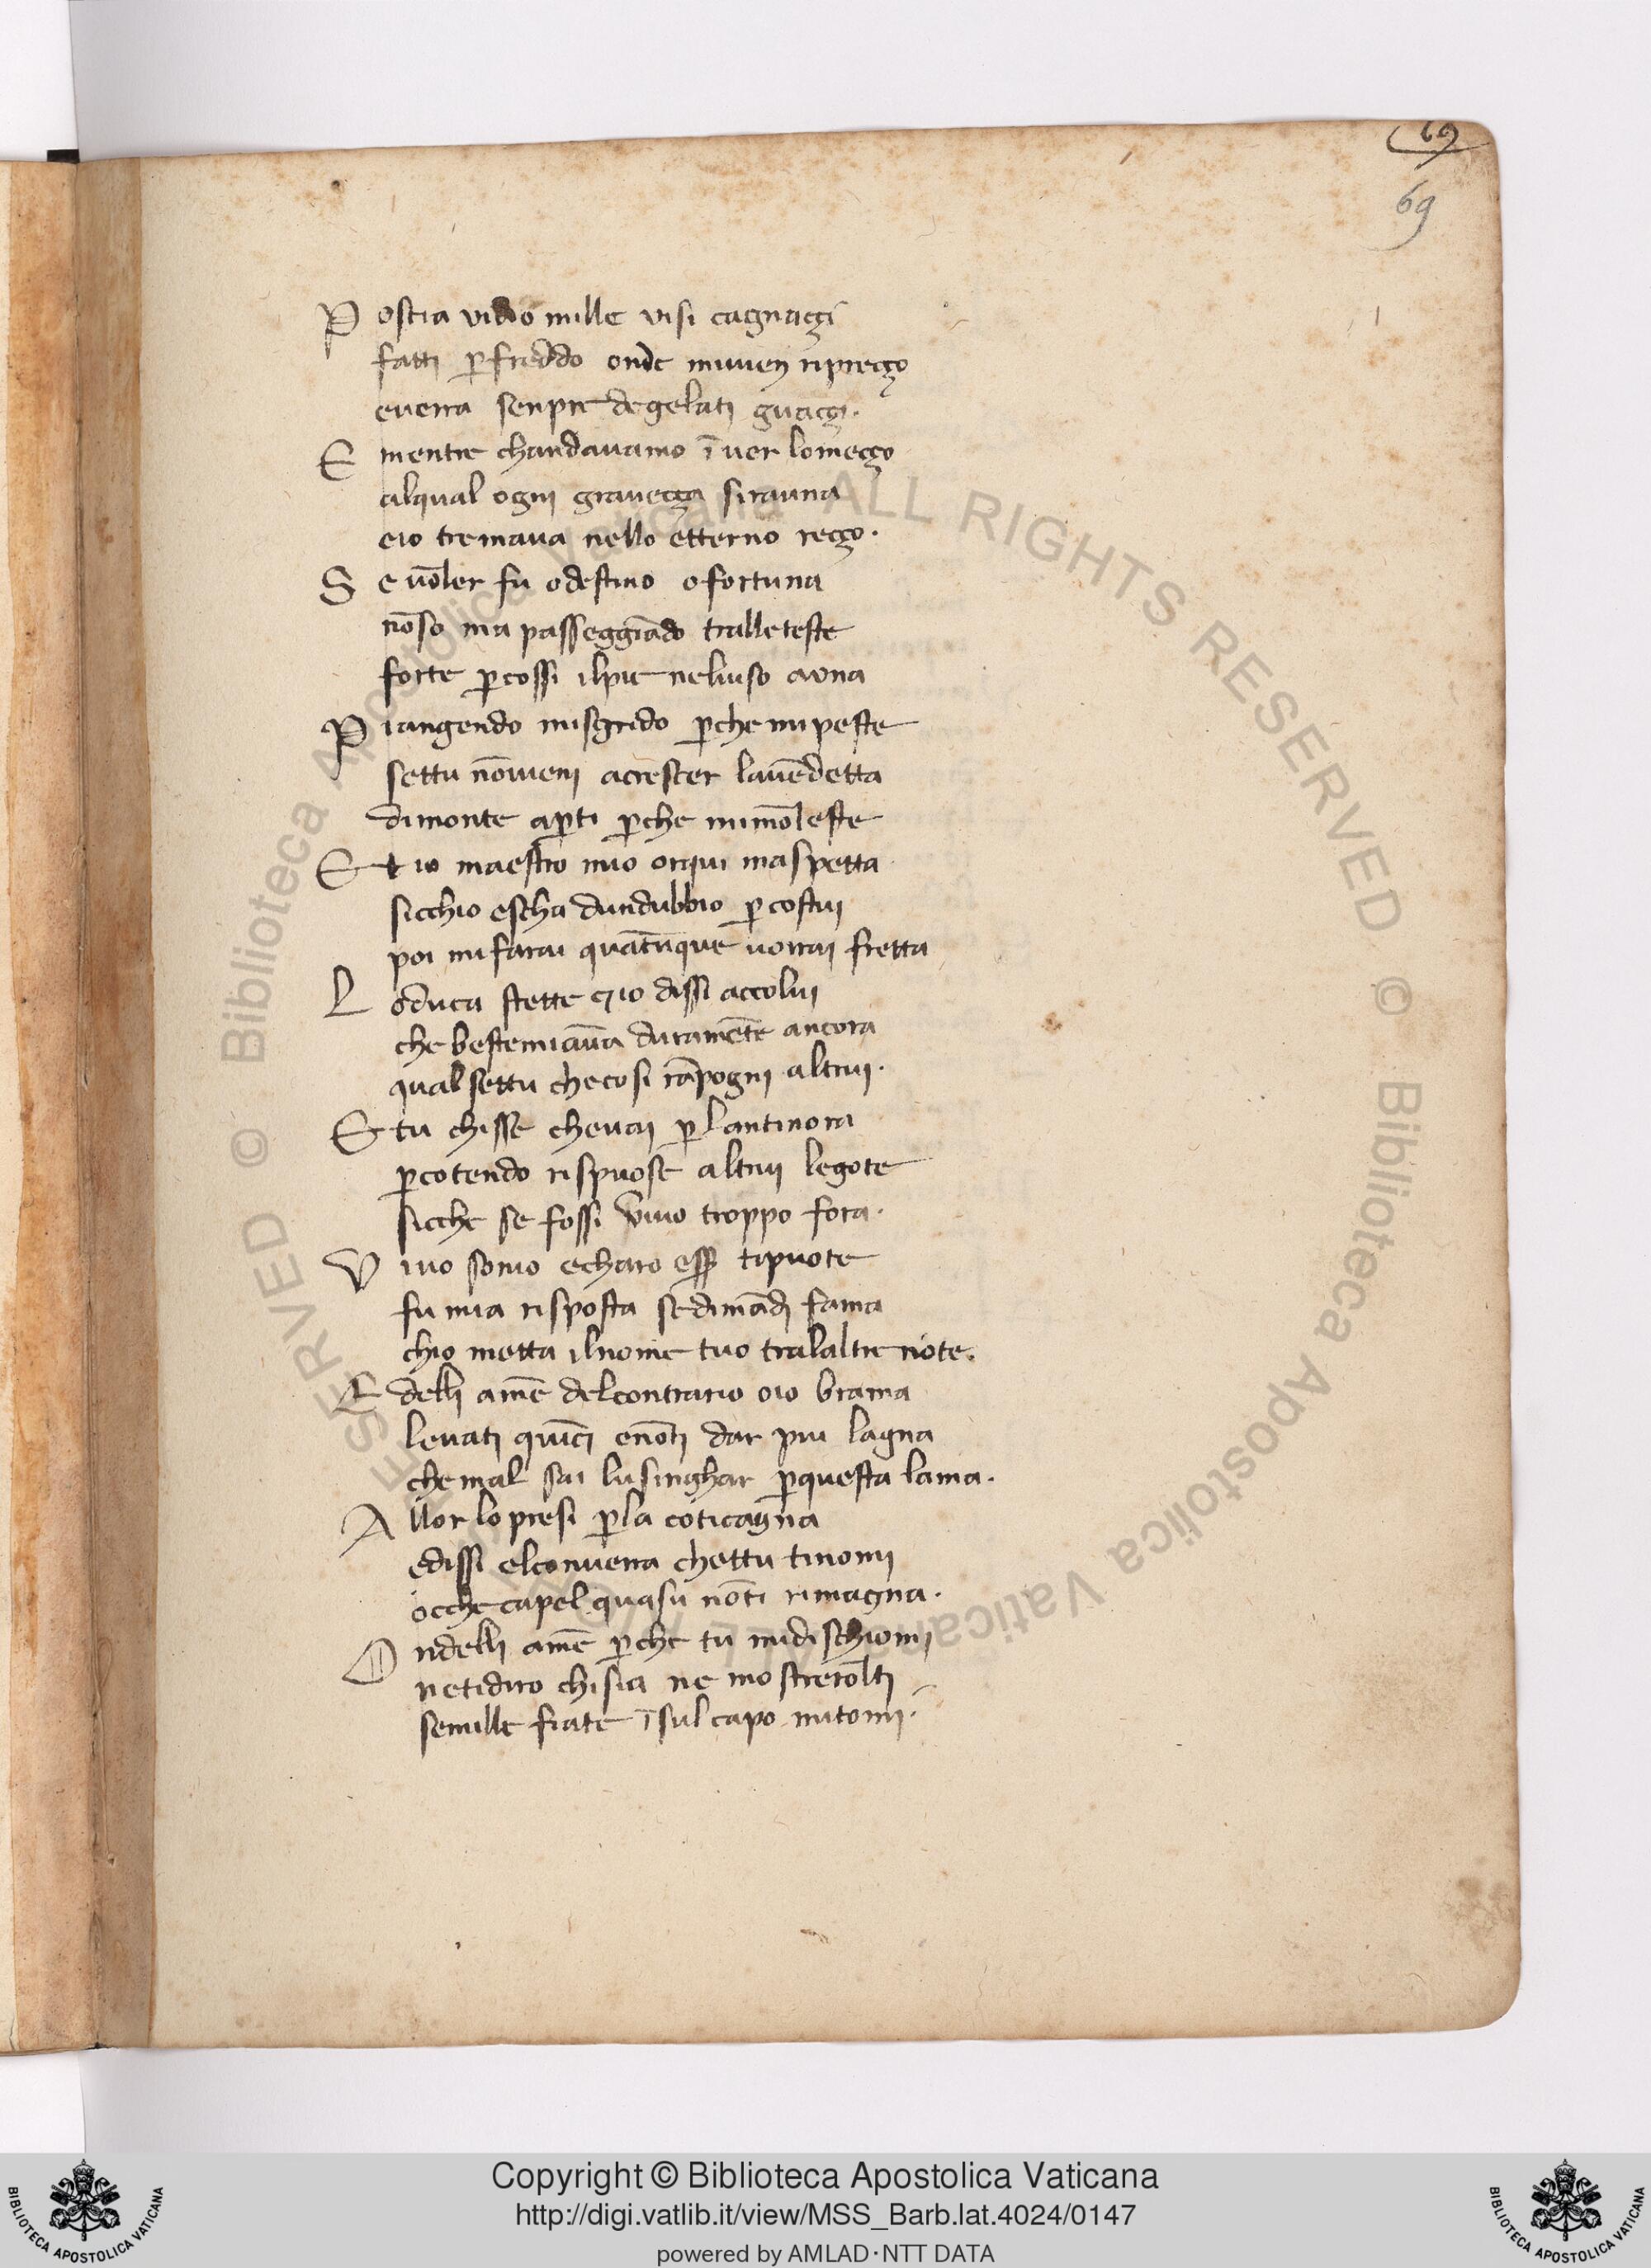 69
69
P ostia vidio mille visi cagnaççi
fatti p̲freddo onde muiuen riprecço
everra senpre degelati guacçi.
E mentre chandauamo ī uer lomecço
alqual ogni grauecça sirauna
eio tremaua nello etterno recço.
S e uoler fu odestino ofortuna
nōso ma passeggiādo tralleteste
forte p̲cossi ilpie neluiso aduna
P iangendo misgrido p̲che mipeste
settu nōuieni acrescer lauēdetta
dimonte ap̲ti p̲che mimoleste
E t io maestro mio orqui maspetta
sicchio escha dundubbio p̲ costui
poi mifarai quātūque uorrai fretta
L oduca stette ⁊ io dissi accolui
che bestemiaua duramēte ancora
qual settu checosi rāpogni altrui.
E tu chisse cheuai p̲ lantinora
p̲cotendo rispuose altrui legote
sicche se fossi viuo troppo fora.
V iuo sonio echaro ess̲ tipuote
fu mia risposta sedimādi fama
chio metta ilnome tuo tralaltre note.
E delli amē delcontrario oio brama
leuati quīci enōti dar piu lagna
chemal sai lusinghar p̲questa lama.
A llor lo presi p̲la coticagna
edissi elconuerra chettu tinomi
occhecapel quasu nōti rimagna.
O ndelli amē p̲che tu midischiomi
netidiro chisia ne mostrerolti
semille fiate ī sul capo mitomi.
Biblioteca Apostolica Vaticana ALL RIGHTS RESERVED ©
Biblioteca Apostolica Vaticana ALL RIGHTS RESERVED ©
Copyright © Biblioteca Apostolica Vaticana
http://digi.vatlib.it/view/MSS_Barb.lat.4024/0147
powered by AMLAD·NTT DATA
BIBLIOTECA APOSTOLICA VATICANA
BIBLIOTECA APOSTOLICA VATICANA